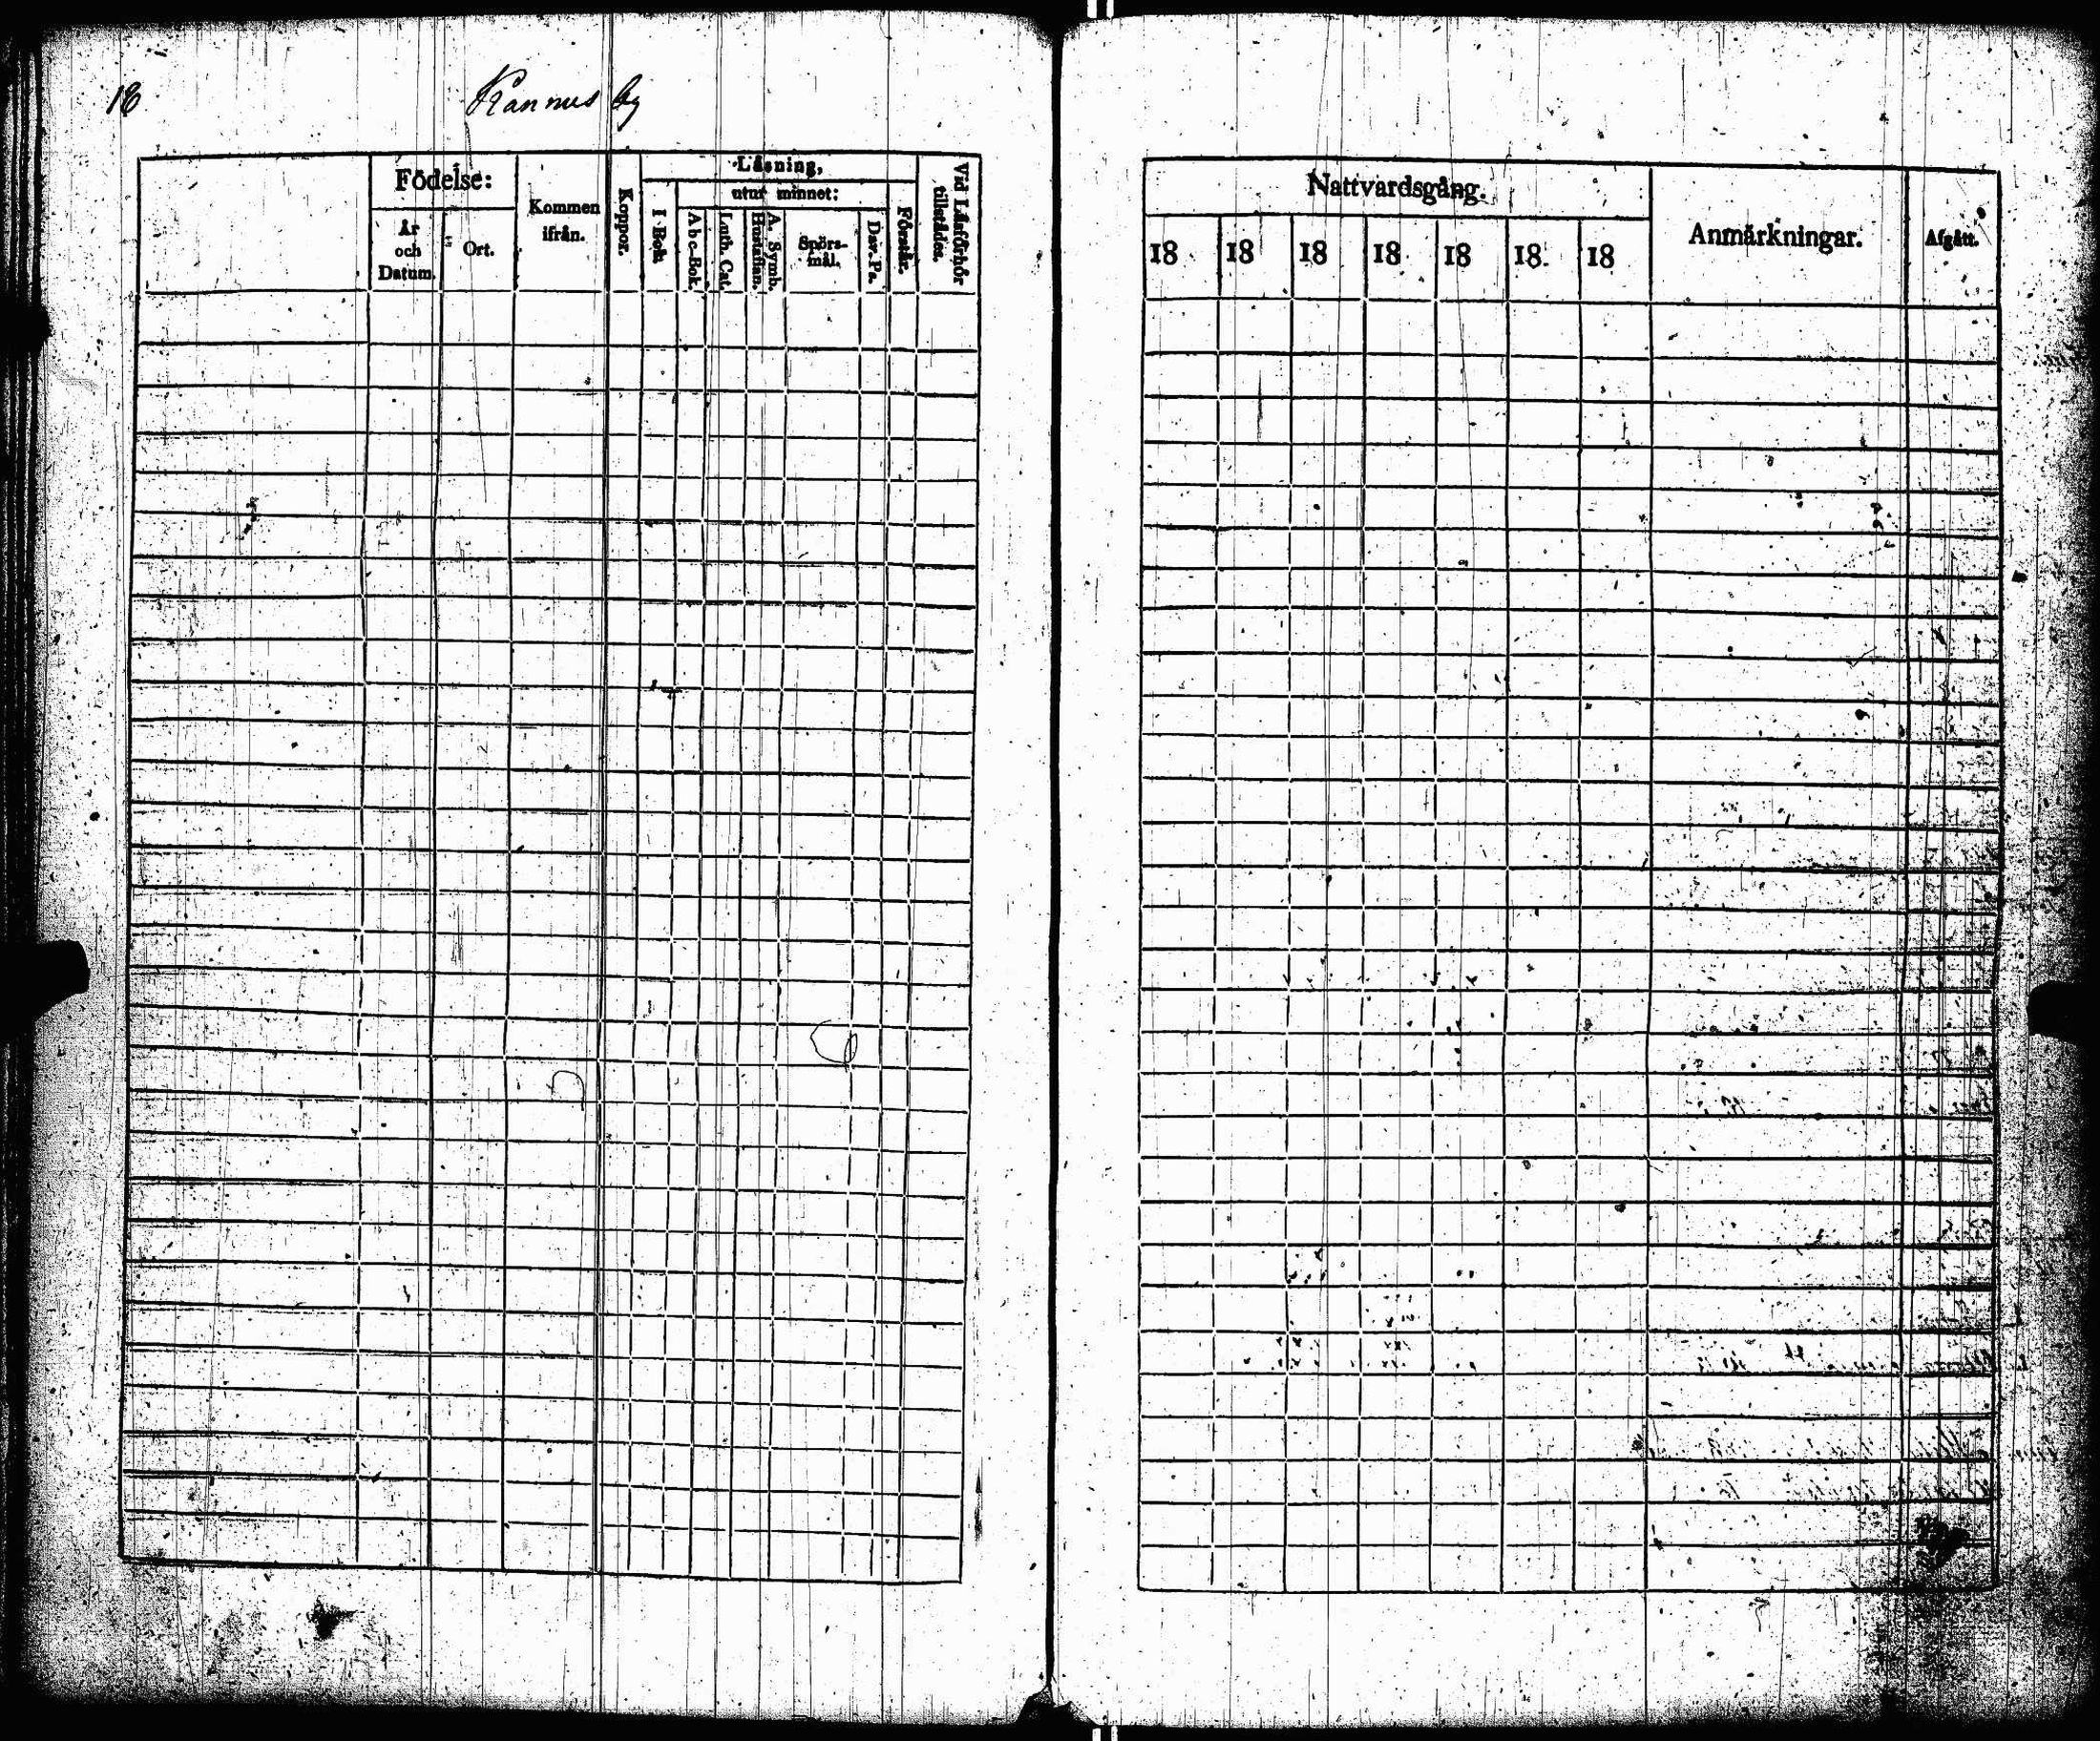 18
Kannus by
Födelse:
År och Datum.
Ort.
Kommen ifrån.
Koppor.
Läsning,
utur minnet:
I Bok
Abc-Bok.
Luth. Cat.
A. Symb. Hustaflan.
Spörs-mål.
Dav. Ps.
Förstår.
Vid Läsförhör tillstädes.
Nattvardsgång.
18 18 18 18 18 18. 18
Anmärkningar.
Afgått.